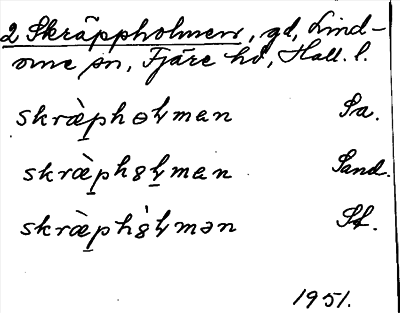 2 Skräppholmen, gd, Lind-
ome sn, Fjäre hd, Hall. l.
skræ̀phɵⱡman Sa.
skræ̀ph8ⱡman Sand.
skræ̀ph8̀ⱡmən St.
1951.